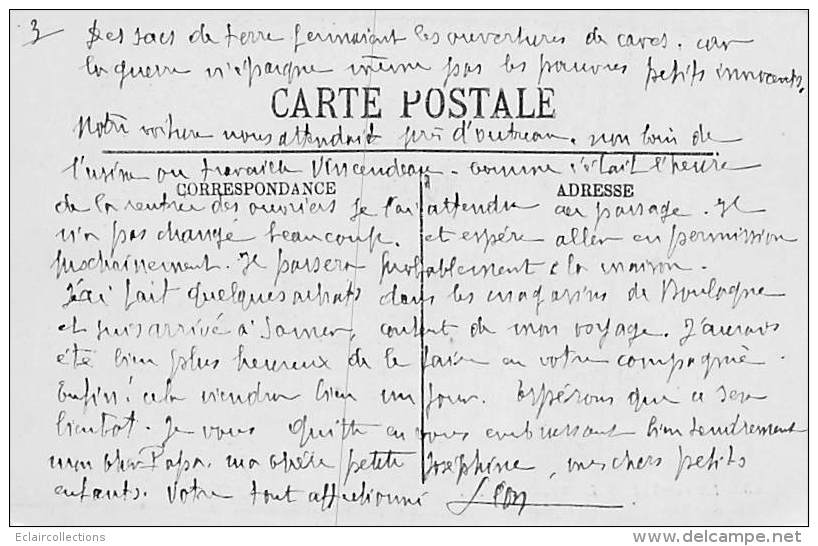 3 Des sacs de terre fermaient les ouvertures de caves. car
la guerre n'épargne même pas les pauvres petits innocents.
CARTE POSTALE
Notre voiture nous attendait près d'outreau, non loin de
l'usine ou travaille Vincendeau. comme c'était l'heure
CORRESPONDANCE ADRESSE
de la rentrée des ouvriers je l'ai attendu au passage. Il
n'a pas changé beaucoup. et espère aller en permission
prochainement. Il passera probablement à la maison.
J'ai fait quelques achats dans les magasins de Boulogne
et suis arrivé à Samer, content de mon voyage. J'aurais
été bien plus heureux de le faire en votre compagnie.
Enfin! cela viendra bien un jour. Espérons que ce sera
bientot. Je vous quitte en vous embrassant bien tendrement
mon cher Papa. ma chère petite Joséphine, mes chers petits
enfants. Votre tout affectionné Léon
Eclaircollections
delcampe.net